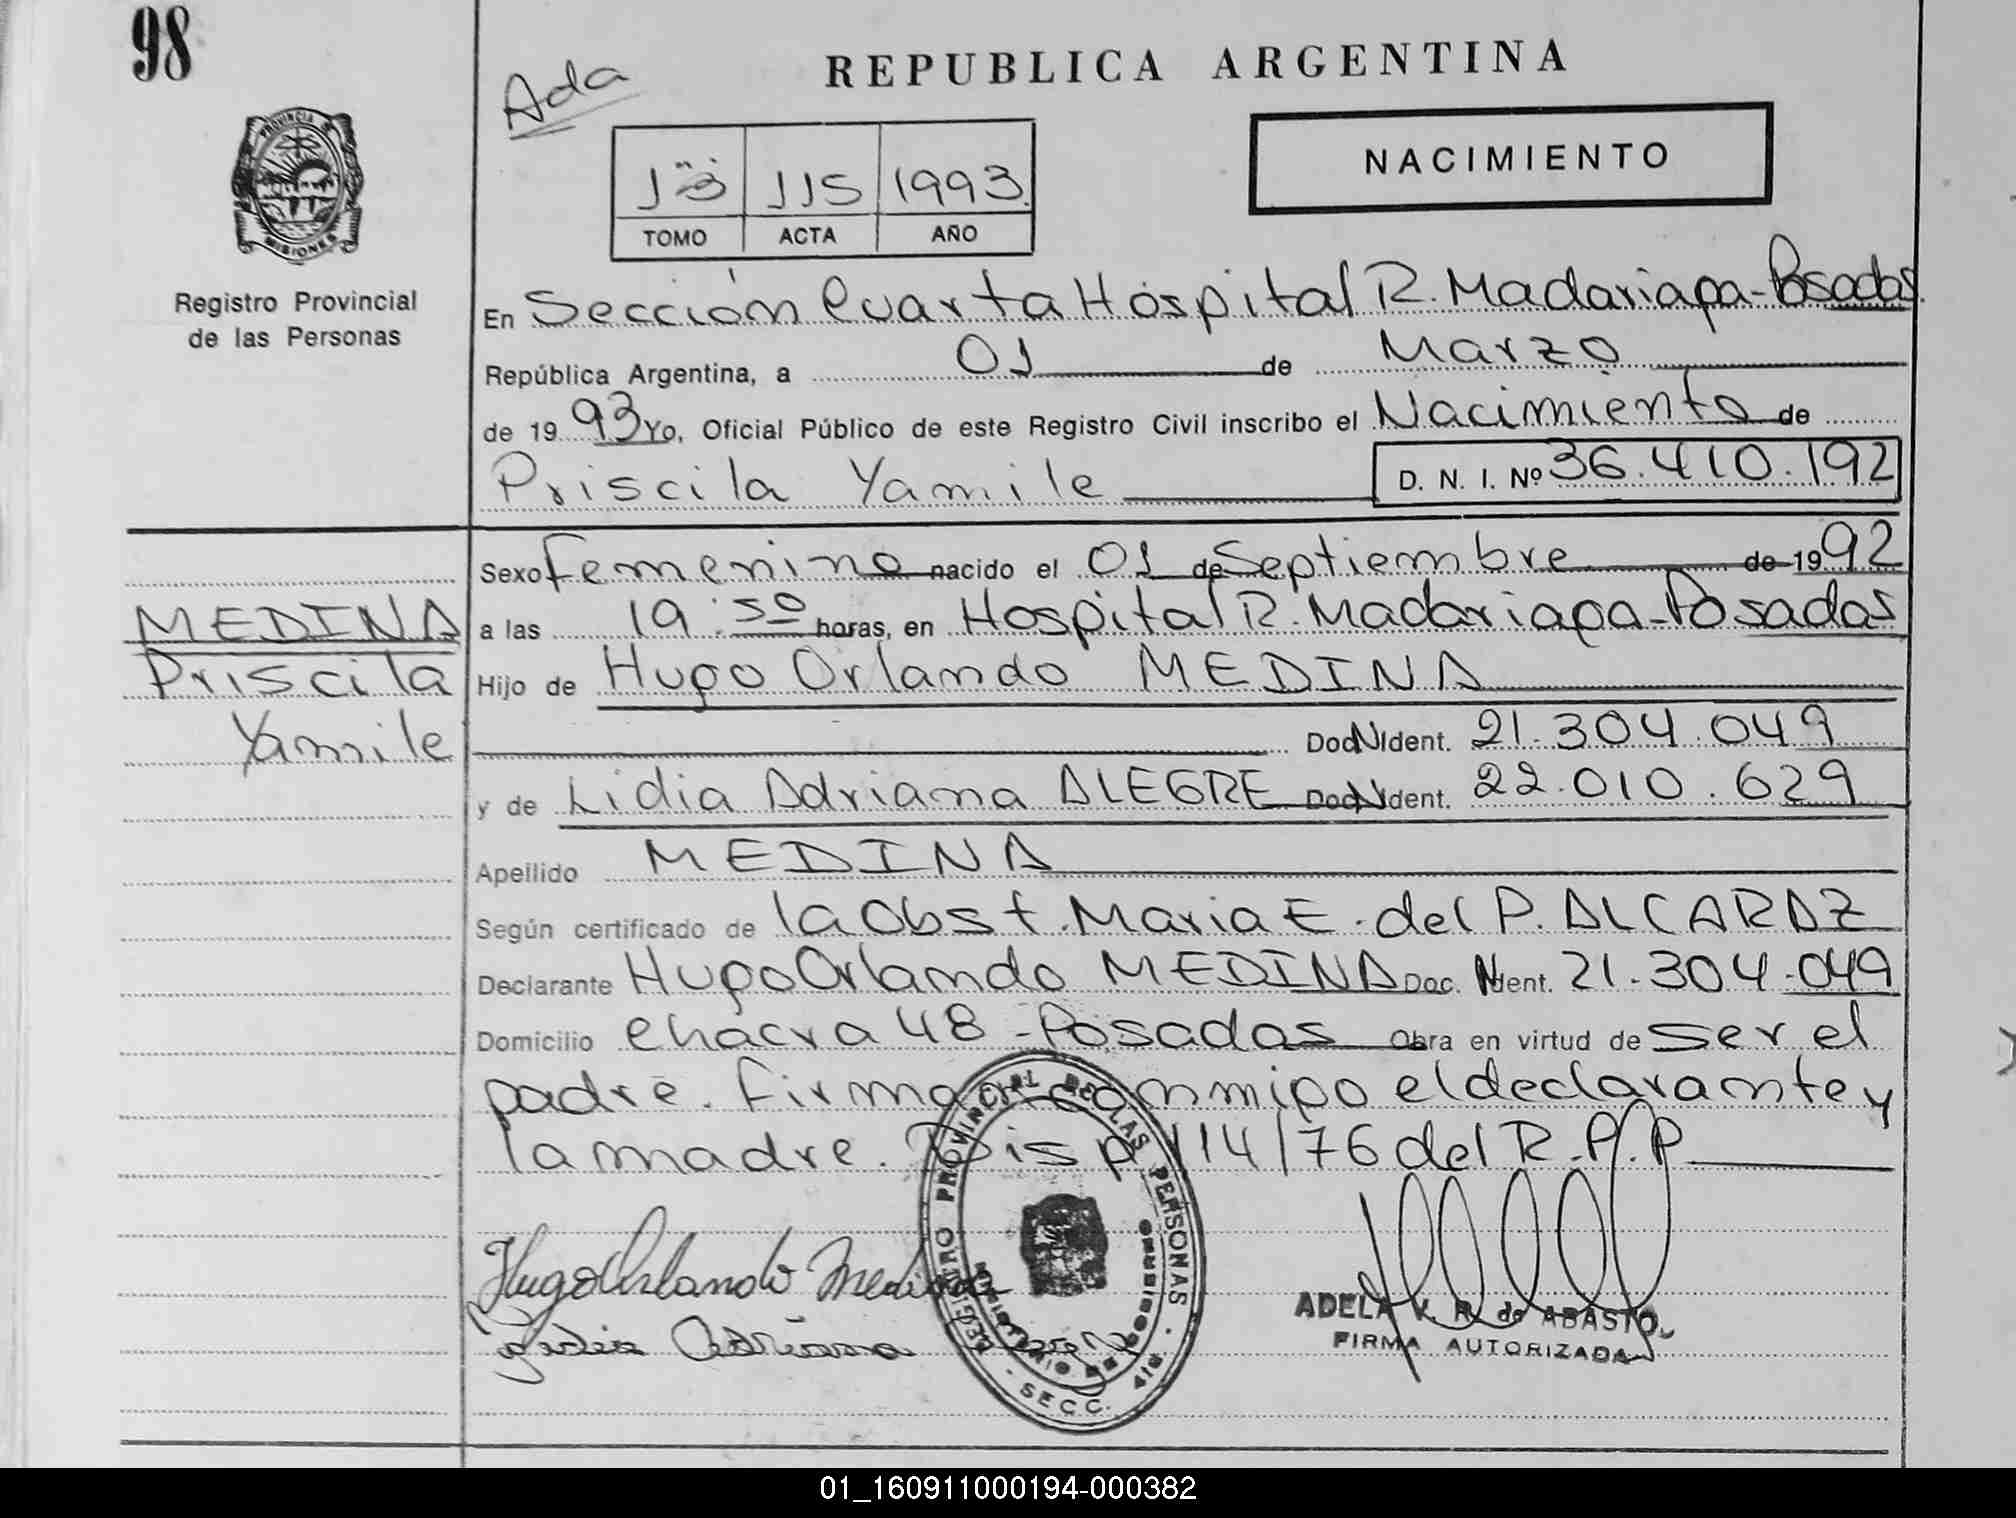 98
Ada
REPUBLICA ARGENTINA
NACIMIENTO
115 1993
TOMO ACTA AÑO
PROVINCIA DE
MISIONES
Registro Provincial
de las Personas
En Sección Cuarta Hospital R. Madariaga - Posadas
República Argentina, a 01 de Marzo
de 1993 Yo, Oficial Público de este Registro Civil inscribo el Nacimiento de
Priscila Yamile D. N. I. Nº 36.410.192
Sexo Femenino nacido el 01 de Septiembre de 1992
MEDINA
Priscila
Yamile
a las 19:50 horas, en Hospital R. Madariaga - Posadas
Hijo de Hugo Orlando MEDINA
Doc N Ident. 21.304.049
y de Lidia Adriana ALEGRE Doc N Ident. 22.010.629
Apellido MEDINA
Según certificado de la Obst. Maria E. del P. ALCARAZ
Declarante Hugo Orlando MEDINA Doc. N Ident. 21.304.049
Domicilio Chacra 48 - Posadas Obra en virtud de ser el
padre. Firman conmigo el declarante y
la madre. Disp. 114/76 del R.P.P
REGISTRO PROVINCIAL DE LAS PERSONAS
MINISTERIO DE GOBIERNO
SECC. 4ta.
Hugo Orlando Medina
Lidia Adriana
ADELA V. R. de ABASTO
FIRMA AUTORIZADA
01_160911000194-000382